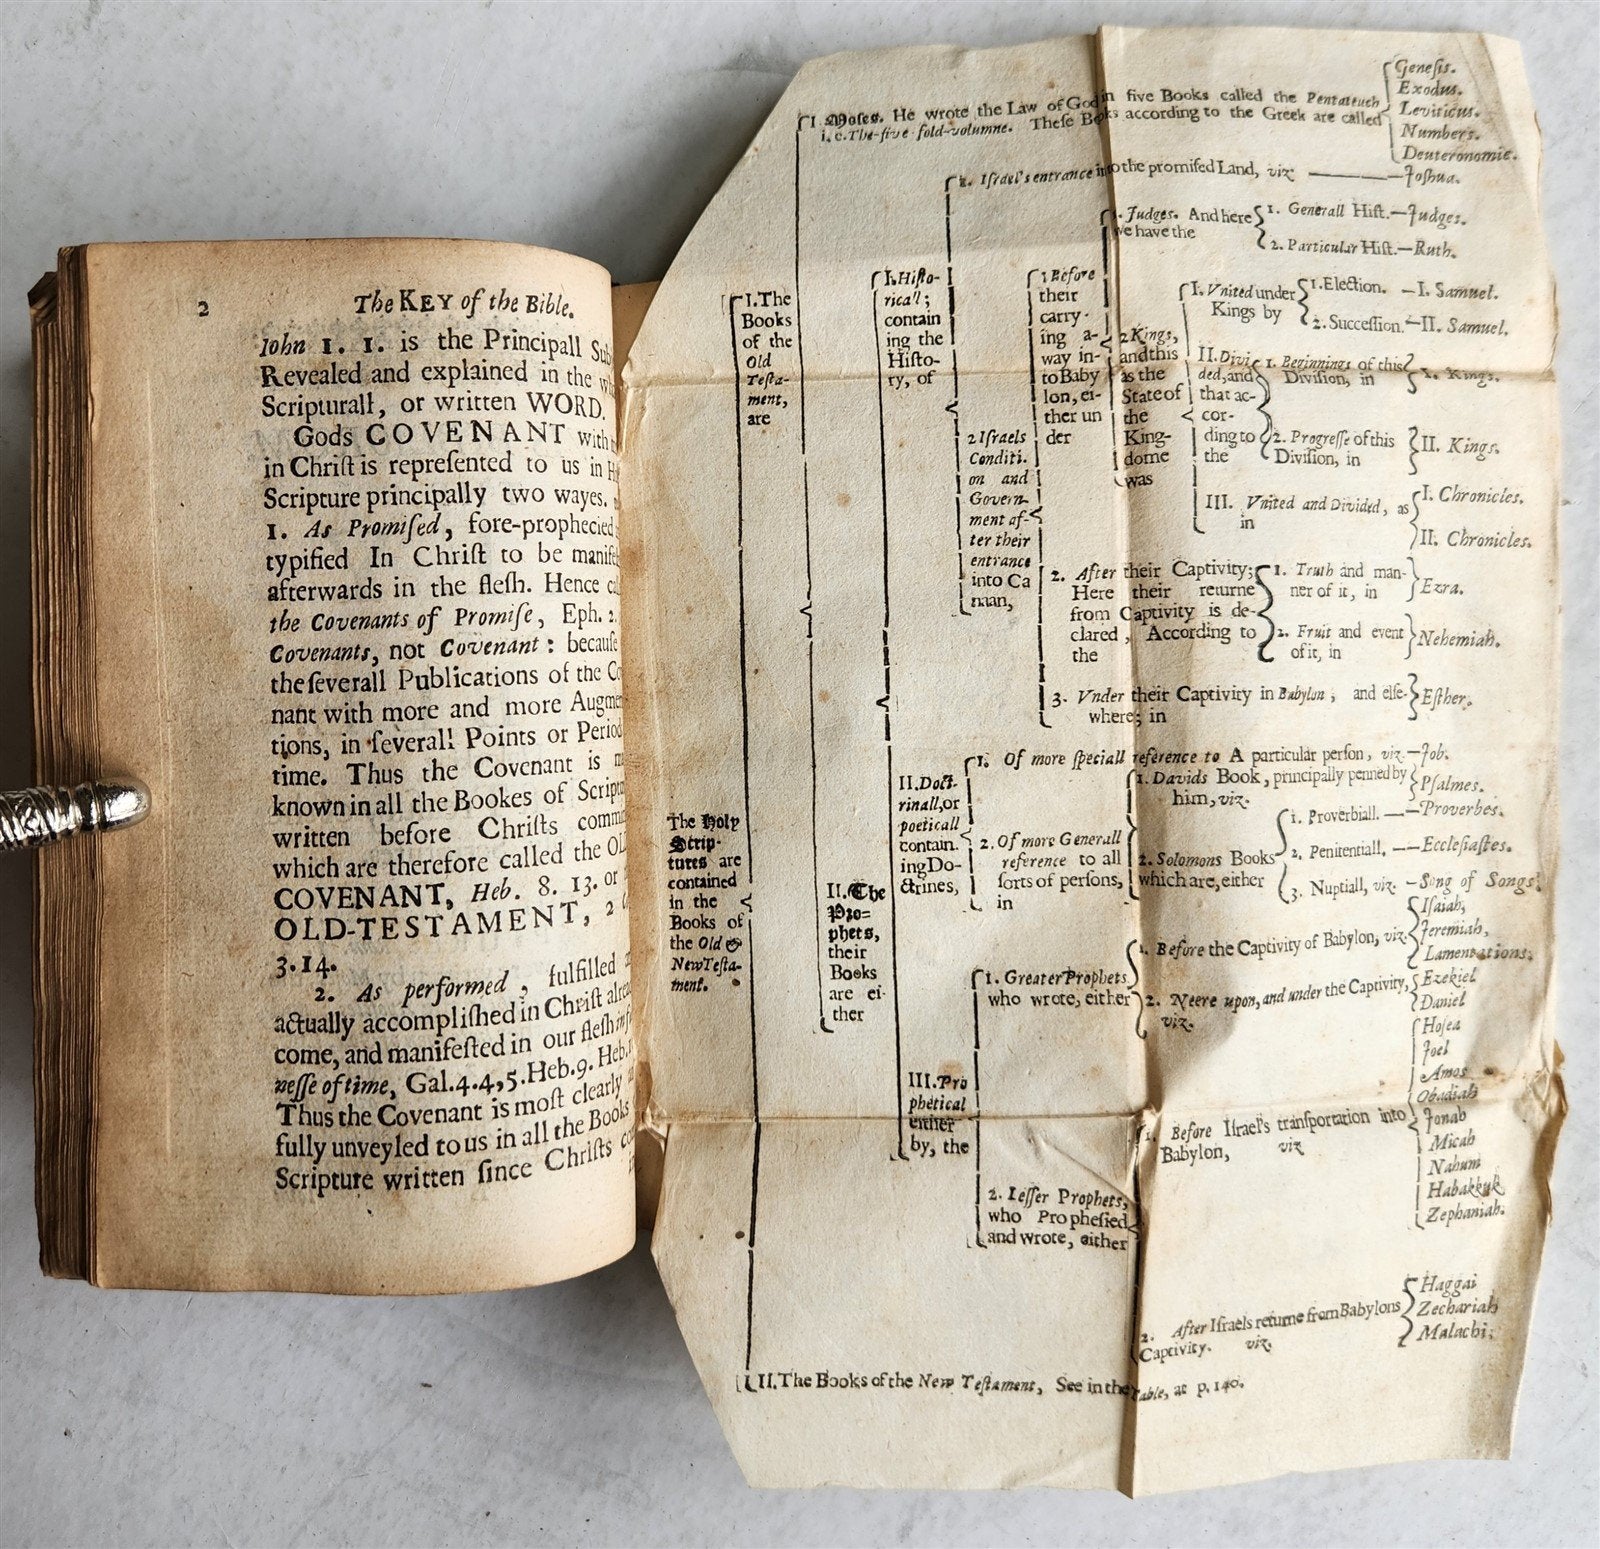 2
The KEY of the Bible.
Iohn 1. 1. is the Principall
Revealed and explained in the
Scripturall, or written WORD.
Gods COVENANT with
in Chriſt is repreſented to us in
Scripture principally two wayes.
1. As Promiſed, fore-prophecied
typified In Chriſt to be
afterwards in the fleſh. Hence
the Covenants of Promiſe, Eph. 2.
Covenants, not Covenant: becauſe
the ſeverall Publications of the
nant with more and more
tions, in ſeverall Points or
time. Thus the Covenant is
known in all the Bookes of
written before Chriſts
which are therefore called the
COVENANT, Heb. 8. 13. or
OLD-TESTAMENT, 2
3.14.
2. As performed, fulfilled
actually accompliſhed in Chriſt
come, and manifeſted in our fleſh
neſſe of time, Gal.4.4,5. Heb.9. Heb.
Thus the Covenant is moſt clearly
fully unveyled to us in all the Books
Scripture written ſince Chriſts
The Holy
Scrip-
tures are
contained
in the
Books of
the Old &
New Teſta-
ment.
I. The
Books
of the
Old
Teſta-
ment,
are
I. Moſes. He wrote the Law of God in five Books called the Pentateuch
i. e. The-five fold-volumne. Theſe Books according to the Greek are called
Geneſis.
Exodus.
Leviticus.
Numbers.
Deuteronomie.
II. The
Pro-
phets,
their
Books
are ei-
ther
I. Hiſto-
ricall;
contain
ing the
Hiſto-
ry, of
1. Iſrael's entrance into the promiſed Land, viz — Joſhua.
2 Iſraels
Conditi-
on and
Govern-
ment af-
ter their
entrance
into Ca
naan,
1 Before
their
carry-
ing a-
way in-
to Baby
lon, ei-
ther un
der
1. Judges. And here
we have the
1. Generall Hiſt.—Judges.
2. Particular Hiſt.—Ruth.
2 Kings,
and this
as the
State of
the
King-
dome
was
I. Vnited under
Kings by
1. Election. —I. Samuel.
2. Succeſſion.—II. Samuel.
II. Divi-
ded, and
that ac-
cor-
ding to
the
1. Beginnings of this
Diviſion, in
I. Kings.
2. Progreſſe of this
Diviſion, in
II. Kings.
III. Vnited and Divided, as
in
I. Chronicles.
II. Chronicles.
2. After their Captivity;
Here their returne
from Captivity is de-
clared, According to
the
1. Truth and man-
ner of it, in
Ezra.
2. Fruit and event
of it, in
Nehemiah.
3. Vnder their Captivity in Babylon, and elſe-
where; in
Eſther.
II. Doct-
rinall, or
poeticall
contain-
ing Do-
ctrines,
1. Of more ſpeciall reference to A particular perſon, viz—Job.
2. Of more Generall
reference to all
ſorts of perſons,
in
1. Davids Book, principally penned by
him, viz.
Pſalmes.
2. Solomons Books
which are, either
1. Proverbiall. ——Proverbes.
2. Penitentiall. ——Eccleſiaſtes.
3. Nuptiall, viz. —Song of Songs.
III. Pro
phetical
either
by, the
1. Greater Prophets
who wrote, either
1. Before the Captivity of Babylon, viz.
Iſaiah,
Jeremiah,
Lamentations.
2. Neere upon, and under the Captivity,
viz.
Ezekiel
Daniel
2. Leſſer Prophets,
who Propheſied
and wrote, either
1. Before Iſrael's tranſportation into
Babylon, viz
Hoſea
Joel
Amos
Obadiah
Jonah
Micah
Nahum
Habakkuk
Zephaniah.
2. After Iſraels returne from Babylons
Captivity. viz.
Haggai
Zechariah
Malachi.
II. The Books of the New Teſtament, See in the Table, at p. 140.